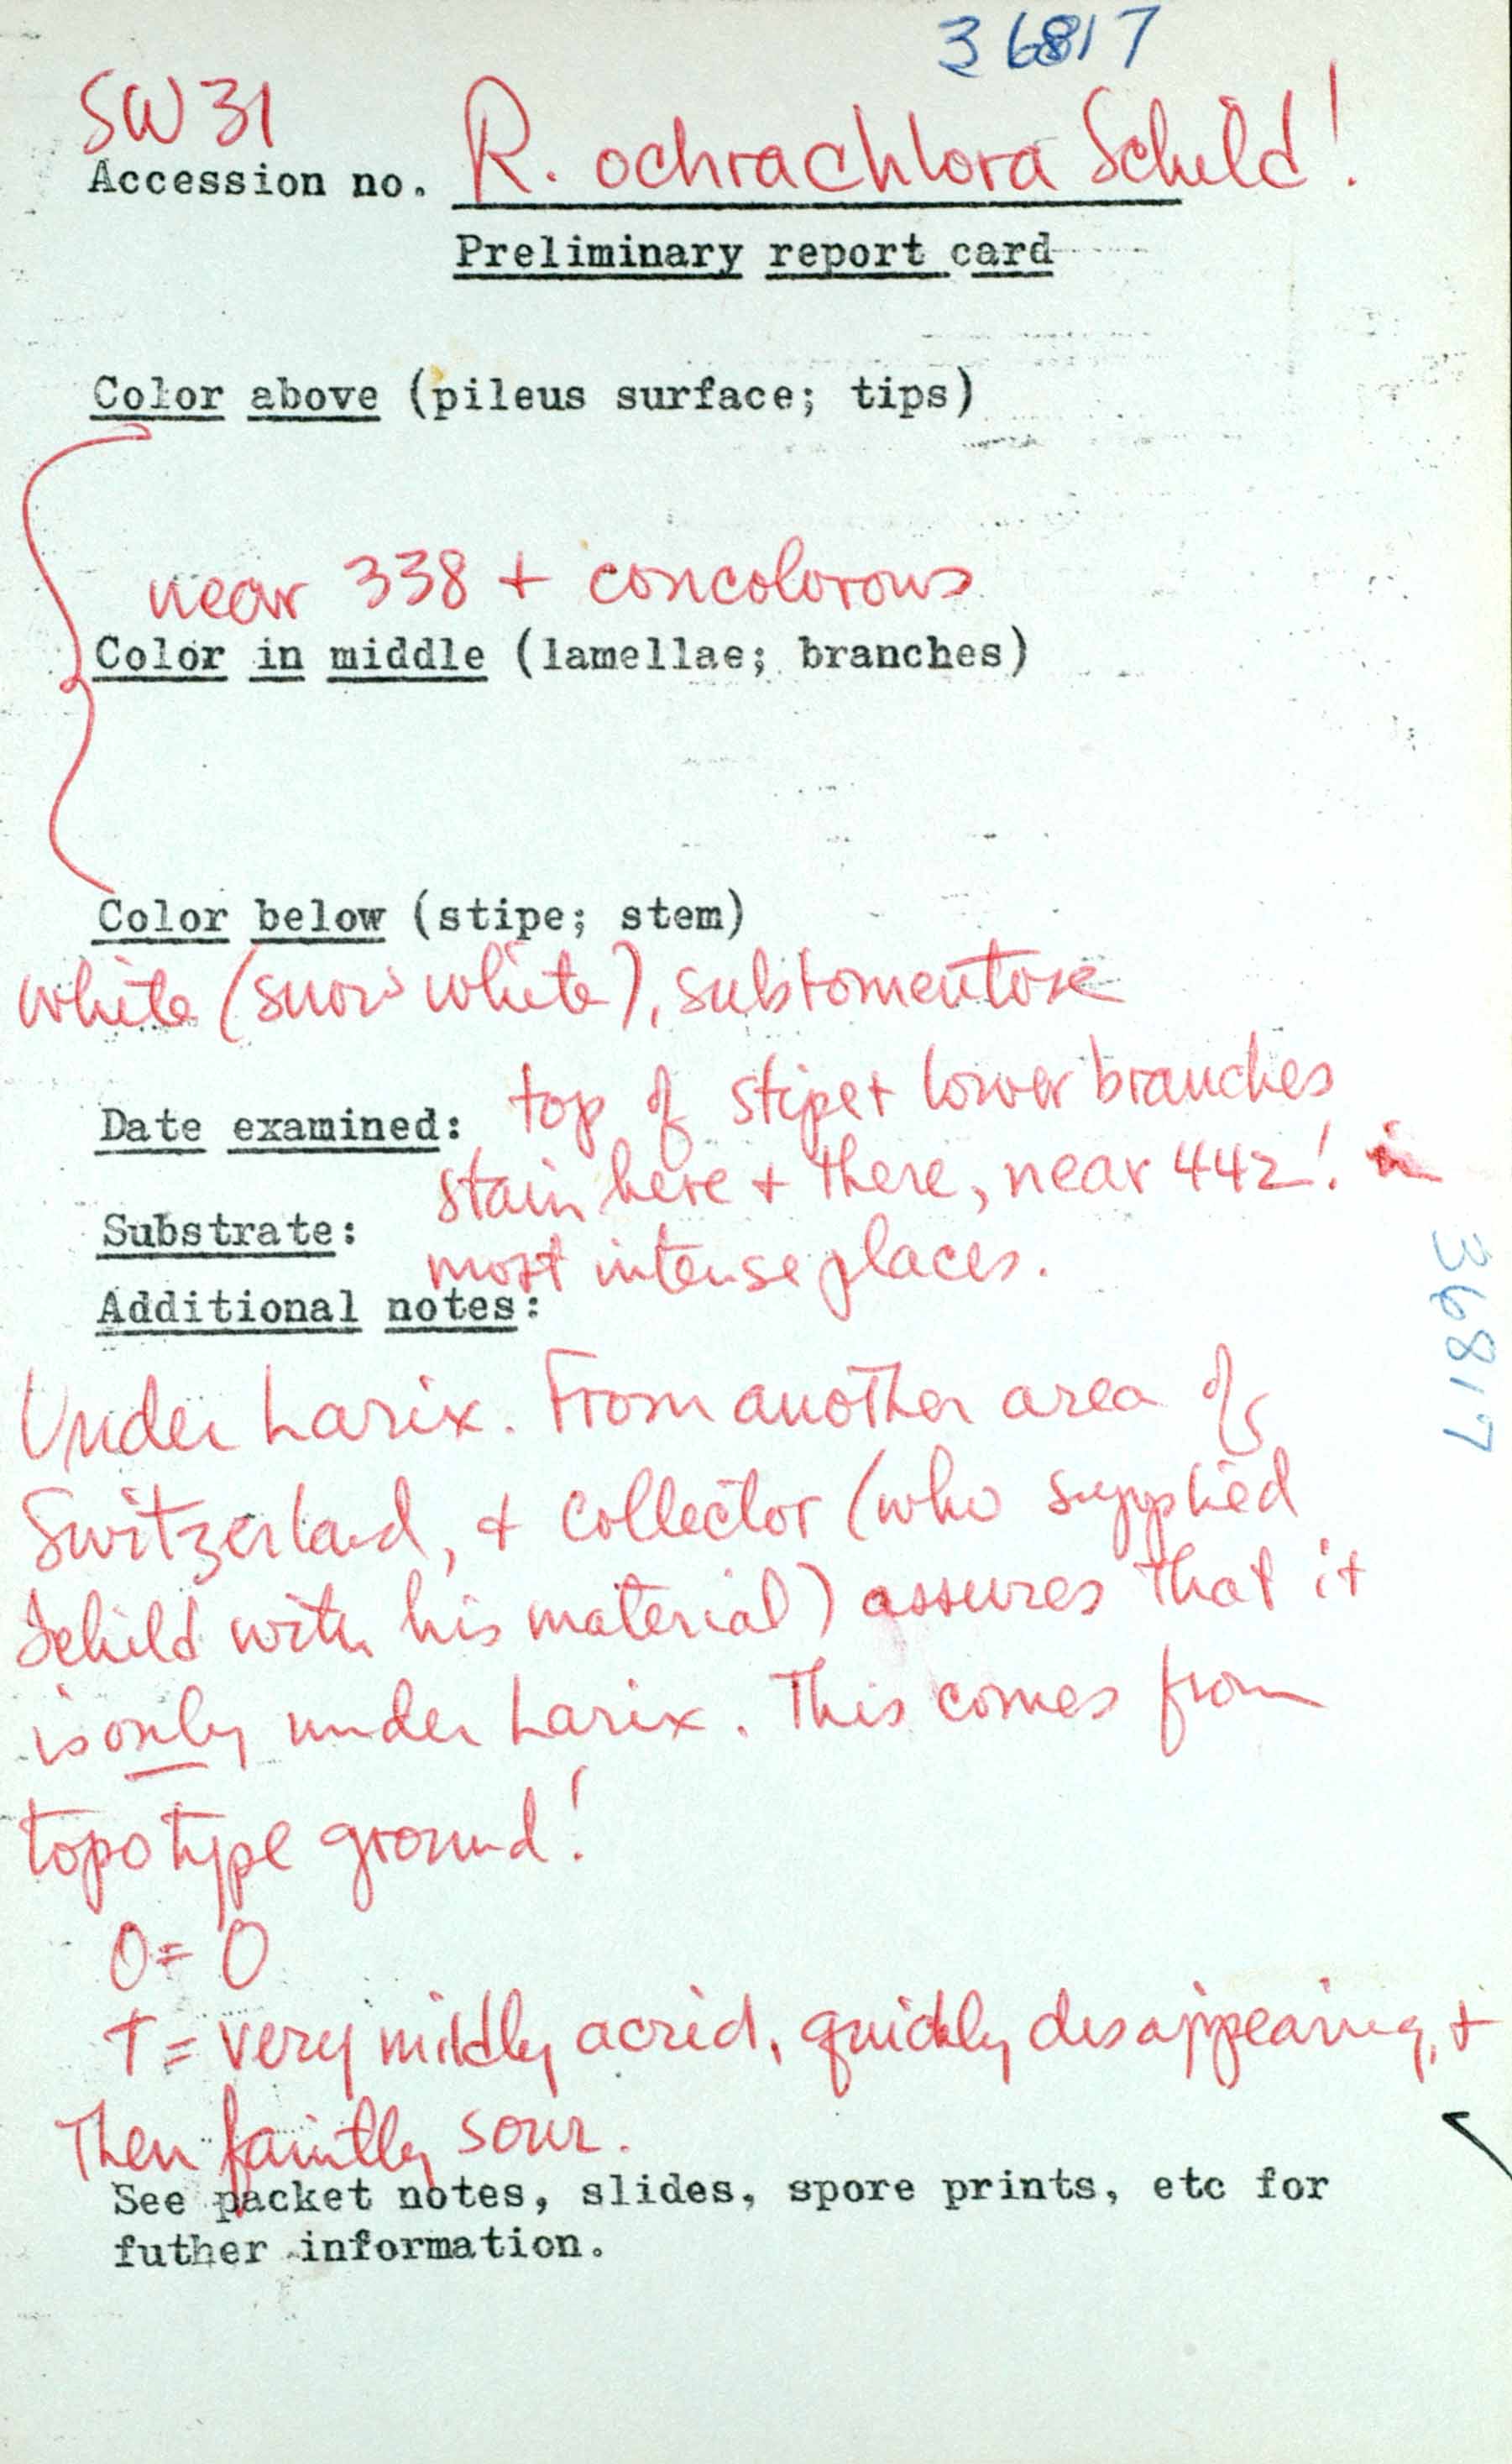 36817
SW31
Accession no. R. ochrachlora Schild!
Preliminary report card
Color above (pileus surface; tips)
near 338 + concolorous
Color in middle (lamellae; branches)
Color below (stipe; stem)
white (snow white), subtomentose
top of stipe + lower branches
Date examined:
stain here + there, near 442! in
Substrate:
most intense places.
Additional notes:
36817
Under Larix. From another area of
Switzerland, + collector (who supplied
Schild with his material) assures that it
is only under Larix. This comes from
topotype ground!
O = O
T = very mildly acrid, quickly disappearing, +
Then faintly sour.
See packet notes, slides, spore prints, etc for
futher information.